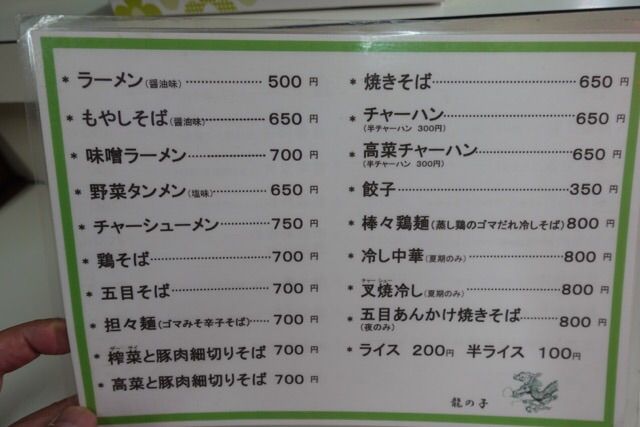 * ラーメン(醤油味)……………………500円
* もやしそば(醤油味)……………………650円
* 味噌ラーメン……………………700円
* 野菜タンメン(塩味)……………………650円
* チャーシューメン……………………750円
* 鶏そば……………………700円
* 五目そば……………………700円
* 担々麺(ゴマみそ辛子そば)……700円
ザー サイ
* 榨菜と豚肉細切りそば 700円
* 高菜と豚肉細切りそば 700円
* 焼きそば……………………650円
* チャーハン……………………650円
(半チャーハン 300円)
* 高菜チャーハン……………………650円
(半チャーハン 300円)
* 餃子……………………350円
* 棒々鶏麺(蒸し鶏のゴマだれ冷しそば)800円
* 冷し中華(夏期のみ)……………………800円
チャー シュー
* 叉焼冷し(夏期のみ)……………………800円
* 五目あんかけ焼きそば……………………800円
(夜のみ)
* ライス 200円 半ライス 100円
龍の子